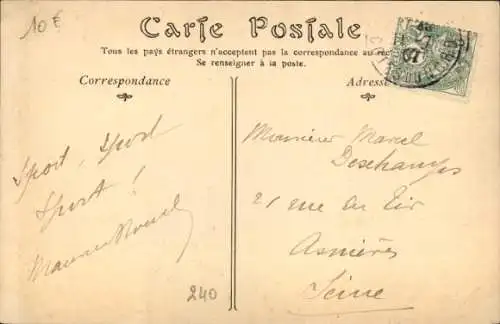 10 €
Carte Postale
Tous les pays étrangers n'acceptent pas la correspondance au
Se renseigner à la poste.
Correspondance
Adresse
07
Sport, Sport
Sport !
Maurice
Monsieur Marcel
Deschamps
21 rue du Tir
Asnières
Seine
240